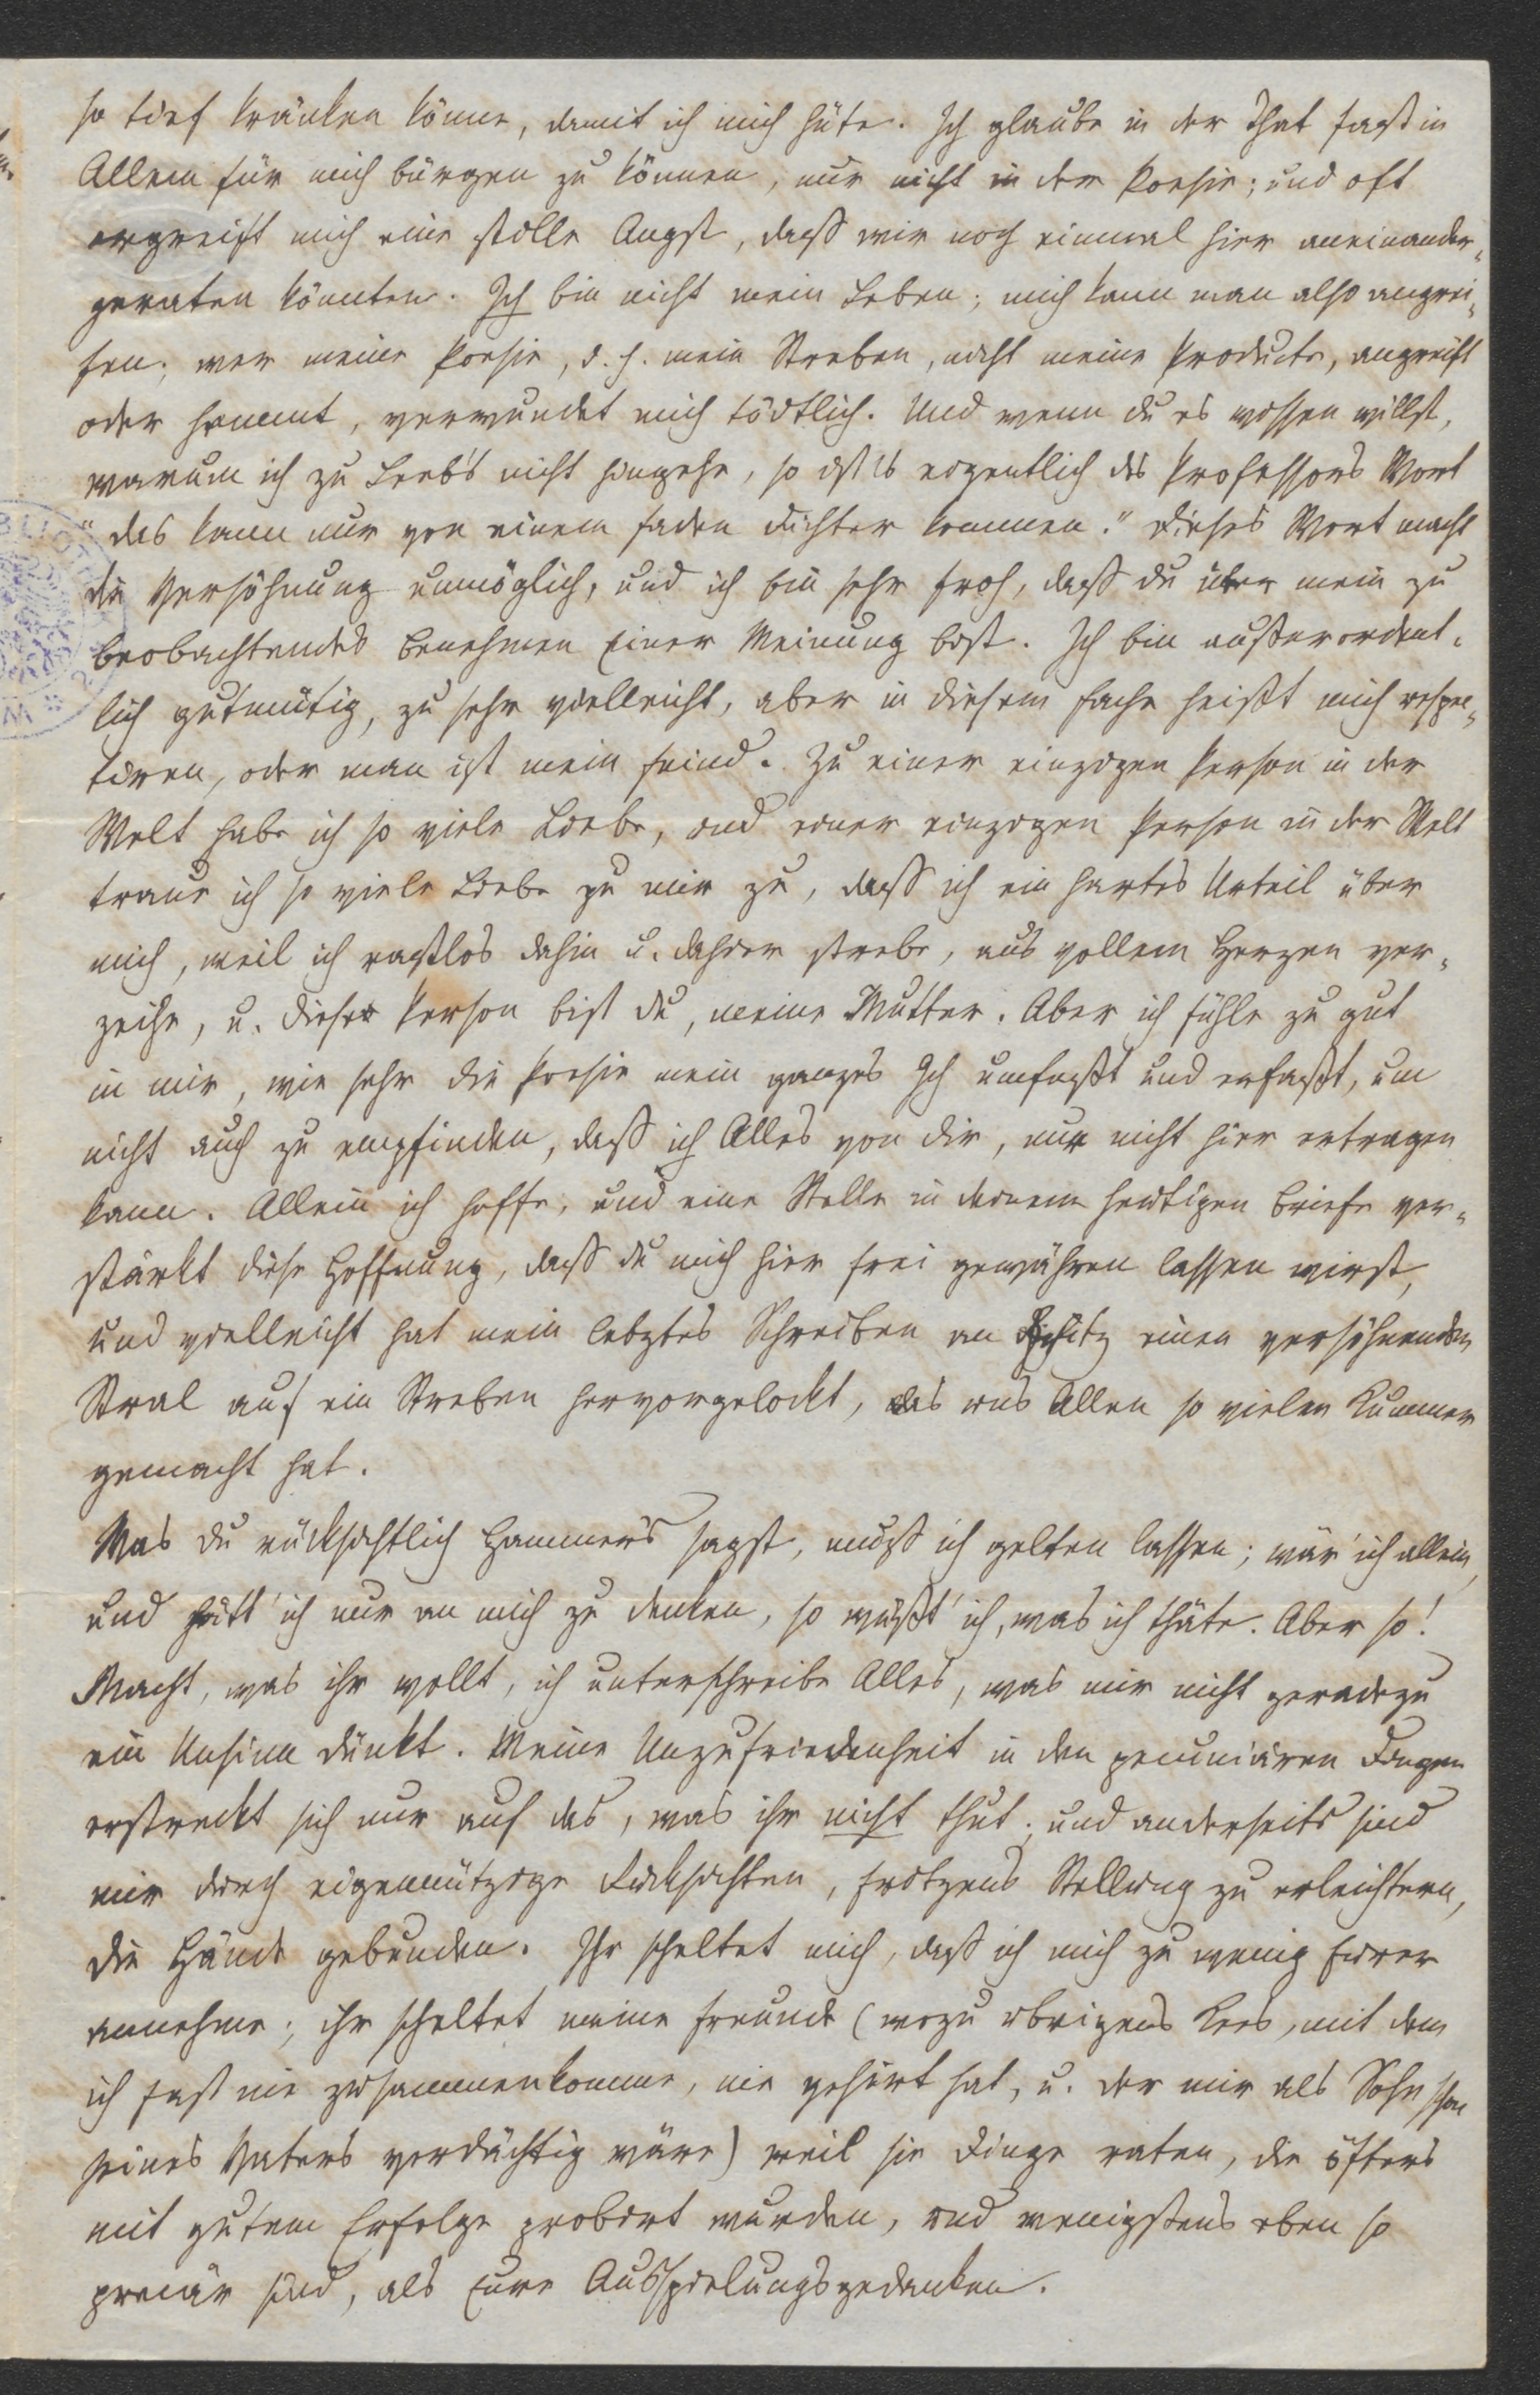 so tief kränken könne, damit ich mich hüte. Ich glaube in der That fast in
Allem für mich bürgen zu können, nur nicht in der Poesie; und oft
ergreift mich eine stille Angst, daß wir noch einmal hier aneinander-
geraten könnten. Ich bin nicht mein Leben; mich kann man also angrei-
fen; wer meine Poesie, d. h. mein Streben, nicht meine Producte, angreift
oder hemmt, verwundet mich tödtlich. Und wenn du es wissen willst,
warum ich zu Leeb's nicht hingehe, so ist es eigentlich des Professors Wort
"das kann nur von einem faden Dichter kommen." Dieses Wort macht
die Versöhnung unmöglich, und ich bin sehr froh, daß du über mein zu
beobachtendes Benehmen Einer Meinung bist. Ich bin außerordent-
lich gutmütig, zu sehr vielleicht, aber in diesem Fache heißt mich respec-
tiren, oder man ist mein Feind. Zu einer einzigen Person in der
Welt habe ich so viele Liebe, und einer einzigen Person in der Welt
traue ich so viele Liebe zu mir zu, daß ich ein hartes Urteil über
mich, weil ich rastlos dahin u. dahier strebe, aus vollem Herzen ver-
zeihe, u. diese Person bist du, meine Mutter. Aber ich fühle zu gut
in mir, wie sehr die Poesie mein ganzes Ich umfaßt und erfaßt, um
nicht auch zu empfinden, daß ich Alles von dir, nur nicht hier ertragen
kann. Allein ich hoffe, und eine Stelle in deinem heutigen Briefe ver-
stärkt diese Hoffnung, daß du mich hier frei gewähren lassen wirst,
und vielleicht hat mein letztes Schreiben an einen versöhnenden
Stral auf ein Streben hervorgelockt, das uns Allen so vielen Kummer
gemacht hat.
Was du rücksichtlich Hammer's sagst, muß ich gelten lassen; wär' ich allein,
und hätt' ich nur an mich zu denken, so wüßt' ich, was ich thäte. Aber so!
Macht, was ihr wollt, ich unterschreibe Alles, was mir nicht geradezu
ein Unsinn dünkt. Meine Unzufriedenheit in den pecuniären Dingen
erstreckt sich nur auf das, was ihr nicht thut; und anderseits sind
mir durch eigennützige Rücksichten, Fritzens Stellung zu erleichtern,
die Hände gebunden. Ihr scheltet mich, daß ich mich zu wenig Eurer
annehme; ihr scheltet meine Freunde (wozu übrigens mit dem
ich fast nie zusammenkomme, nie gehört hat, u. der mir als Sohn schon
seines Vaters verdächtig wäre) weil sie Dinge raten, die öfters
mit gutem Erfolge probirt wurden, und wenigstens eben so
precär sind, als Eure Ausspielungsgedanken.